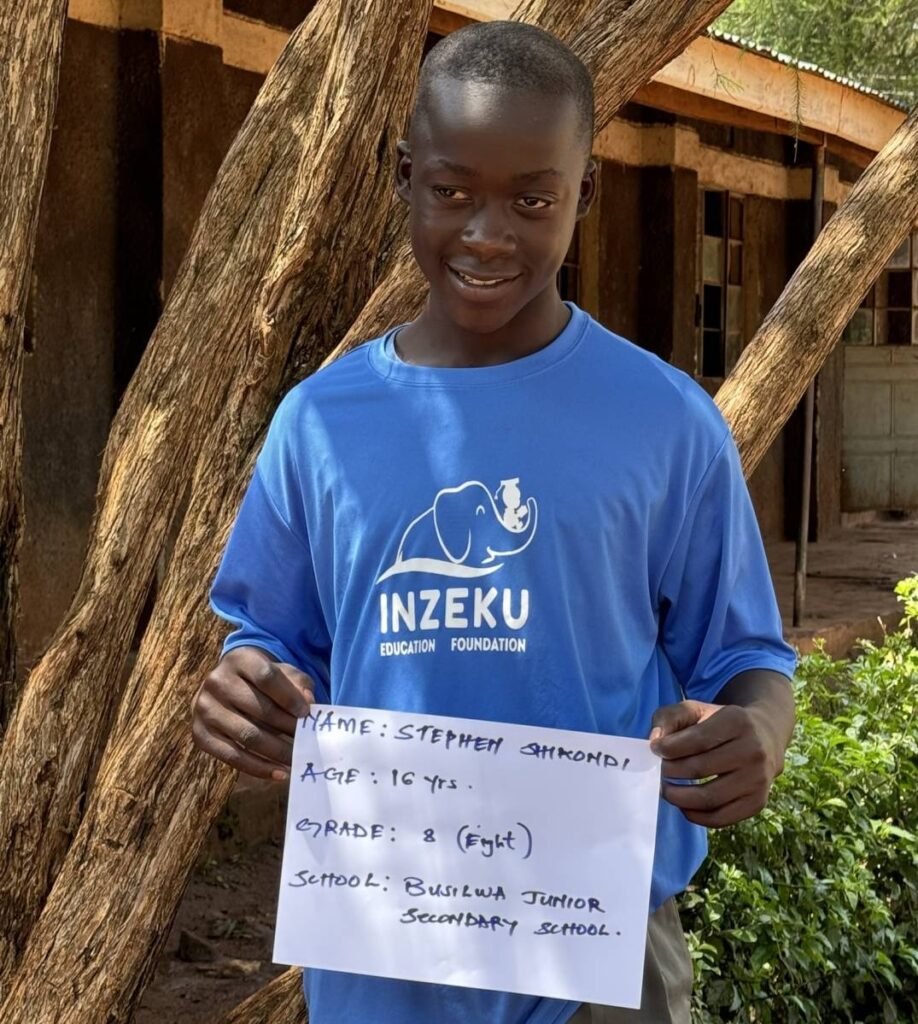 INZEKU
EDUCATION FOUNDATION
NAME: STEPHEN SHIKONDI
AGE: 16 yrs.
GRADE: 8 (Eight)
SCHOOL: BUSILWA JUNIOR
SECONDARY SCHOOL.